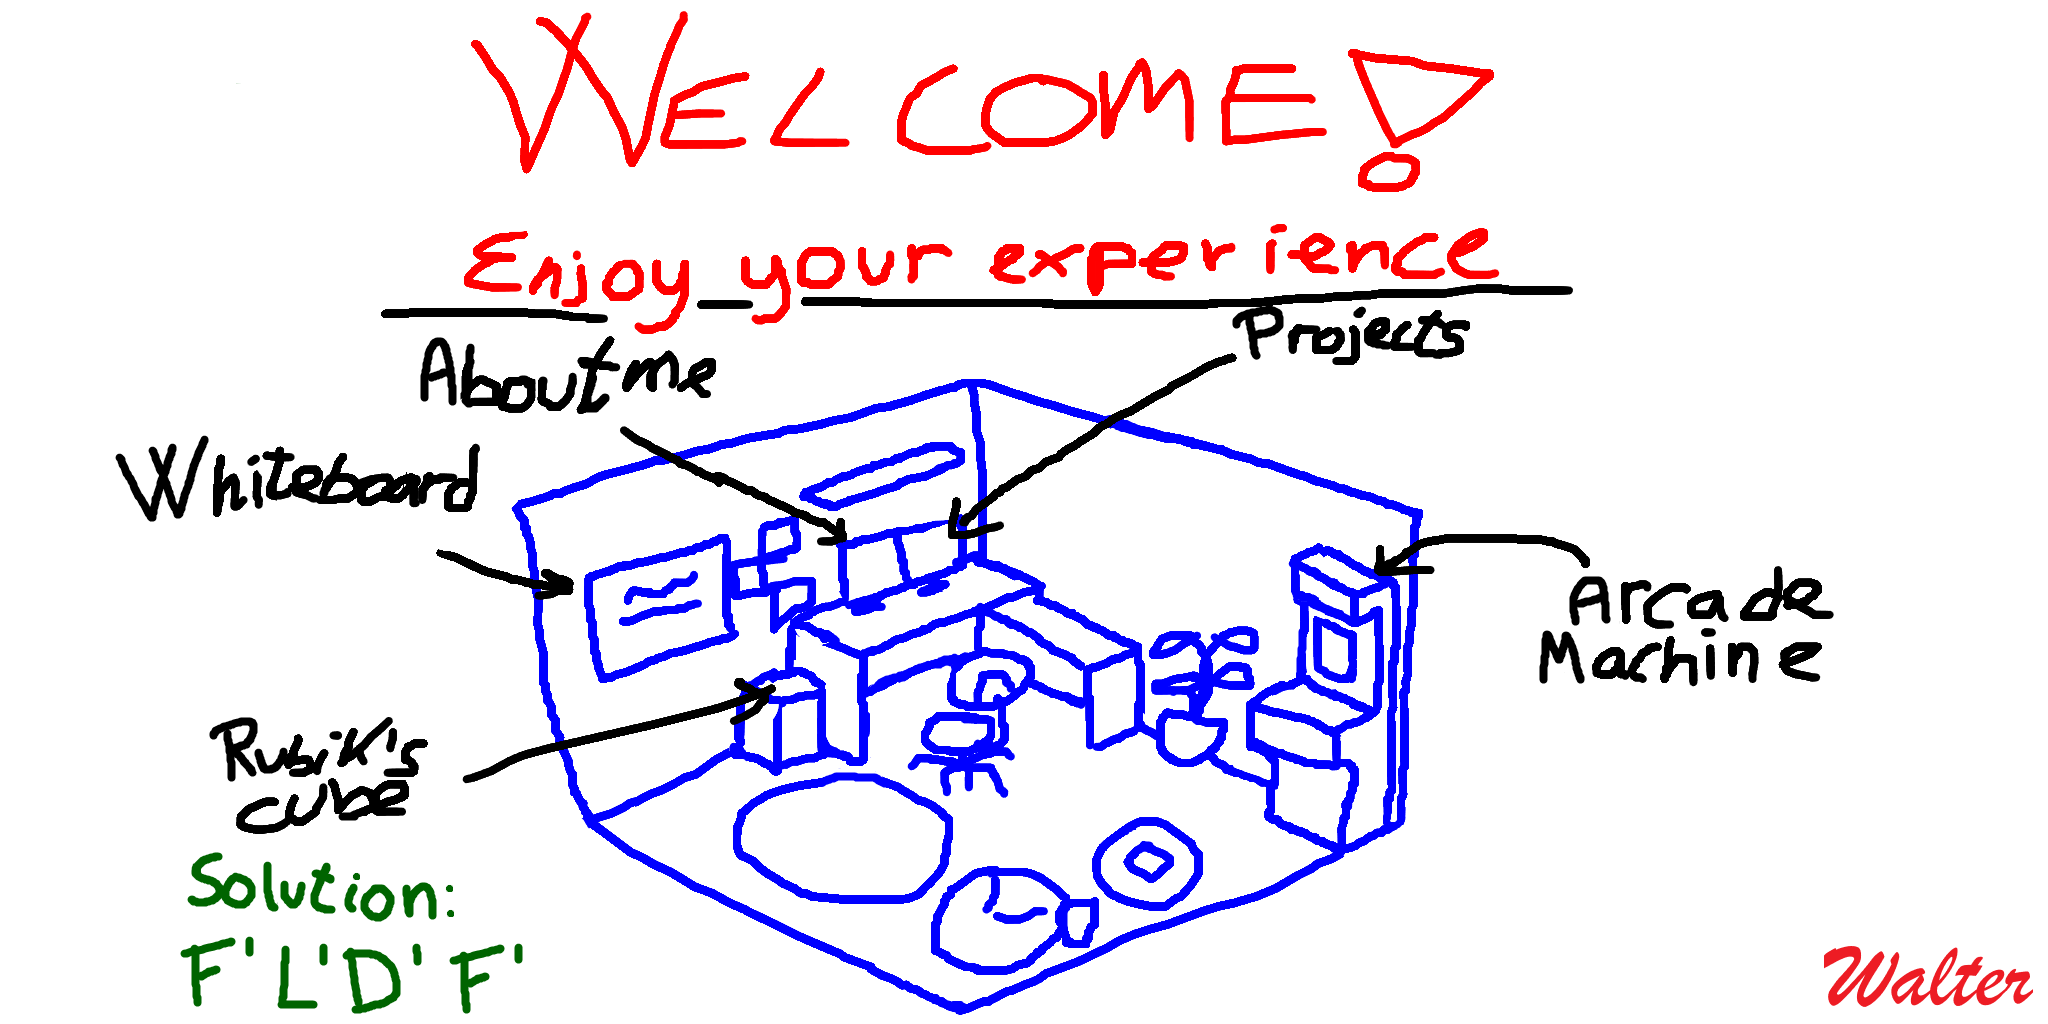 WELCOME!
Enjoy your experience
About me
Projects
Whiteboard
Arcade
Machine
Rubik's
cube
Solution:
F' L' D' F'
Walter